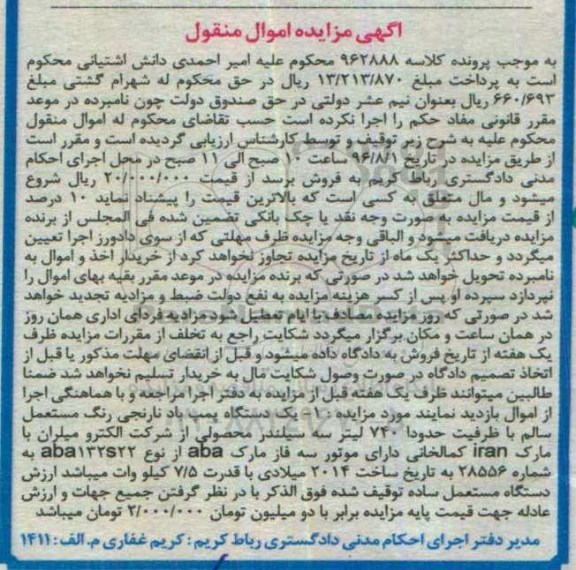 آگهی مزایده اموال منقول
به موجب پرونده کلاسه ۹۶۲۸۸۸ محکوم علیه امیر احمدی دانش اشتیانی محکوم
است به پرداخت مبلغ ۱۳/۲۱۳/۸۷۰ ریال در حق محکوم له شهرام گشتی مبلغ
۶۶۰/۶۹۳ ریال بعنوان نیم عشر دولتی در حق صندوق دولت چون نامبرده در موعد
مقرر قانونی مفاد حکم را اجرا نکرده است حسب تقاضای محکوم له اموال منقول
محکوم علیه به شرح زیر توقیف و توسط کارشناس ارزیابی گردیده است و مقرر است
از طریق مزایده در تاریخ ۹۶/۸/۱ ساعت ۱۰ صبح الی ۱۱ صبح در محل اجرای احکام
مدنی دادگستری رباط کریم به فروش برسد از قیمت ۲۰/۰۰۰/۰۰۰ ریال شروع
میشود و مال متعلق به کسی است که بالاترین قیمت را پیشنهاد نماید ۱۰ درصد
از قیمت مزایده به صورت وجه نقد یا چک بانکی تضمین شده فی المجلس از برنده
مزایده دریافت میشود و الباقی وجه مزایده ظرف مهلتی که از سوی دادورز اجرا تعیین
میگردد و حداکثر یک ماه از تاریخ مزایده تجاوز نخواهد کرد از خریدار اخذ و اموال به
نامبرده تحویل خواهد شد در صورتی که برنده مزایده در موعد مقرر بقیه بهای اموال را
نپردازد سپرده او پس از کسر هزینه مزایده به نفع دولت ضبط و مزادیه تجدید خواهد
شد در صورتی که روز مزایده مصادف با ایام تعطیل شود مزادیه فردای اداری همان روز
در همان ساعت و مکان برگزار میگردد شکایت راجع به تخلف از مقررات مزایده ظرف
یک هفته از تاریخ فروش به دادگاه داده میشود و قبل از انقضای مهلت مذکور یا قبل از
اتخاذ تصمیم دادگاه در صورت وصول شکایت مال به خریدار تسلیم نخواهد شد ضمنا
طالبین میتوانند ظرف یک هفته قبل از مزایده به دفتر اجرا مراجعه و با هماهنگی اجرا
از اموال بازدید نمایند مورد مزایده : ۱- یک دستگاه پمپ باد نارنجی رنگ مستعمل
سالم با ظرفیت حدودا ۷۲۰ لیتر سه سیلندر محصولی از شرکت الکترو میلران با
مارک iran کمالخانی دارای موتور سه فاز مارک aba از نوع aba۱۳۲s۲۲ به
شماره ۲۸۵۵۶ به تاریخ ساخت ۲۰۱۴ میلادی با قدرت ۷/۵ کیلو وات میباشد ارزش
دستگاه مستعمل ساده توقیف شده فوق الذکر با در نظر گرفتن جمیع جهات و ارزش
عادله جهت قیمت پایه مزایده برابر با دو میلیون تومان ۲/۰۰۰/۰۰۰ تومان میباشد
مدیر دفتر اجرای احکام مدنی دادگستری رباط کریم : کریم غفاری م.الف : ۱۴۱۱